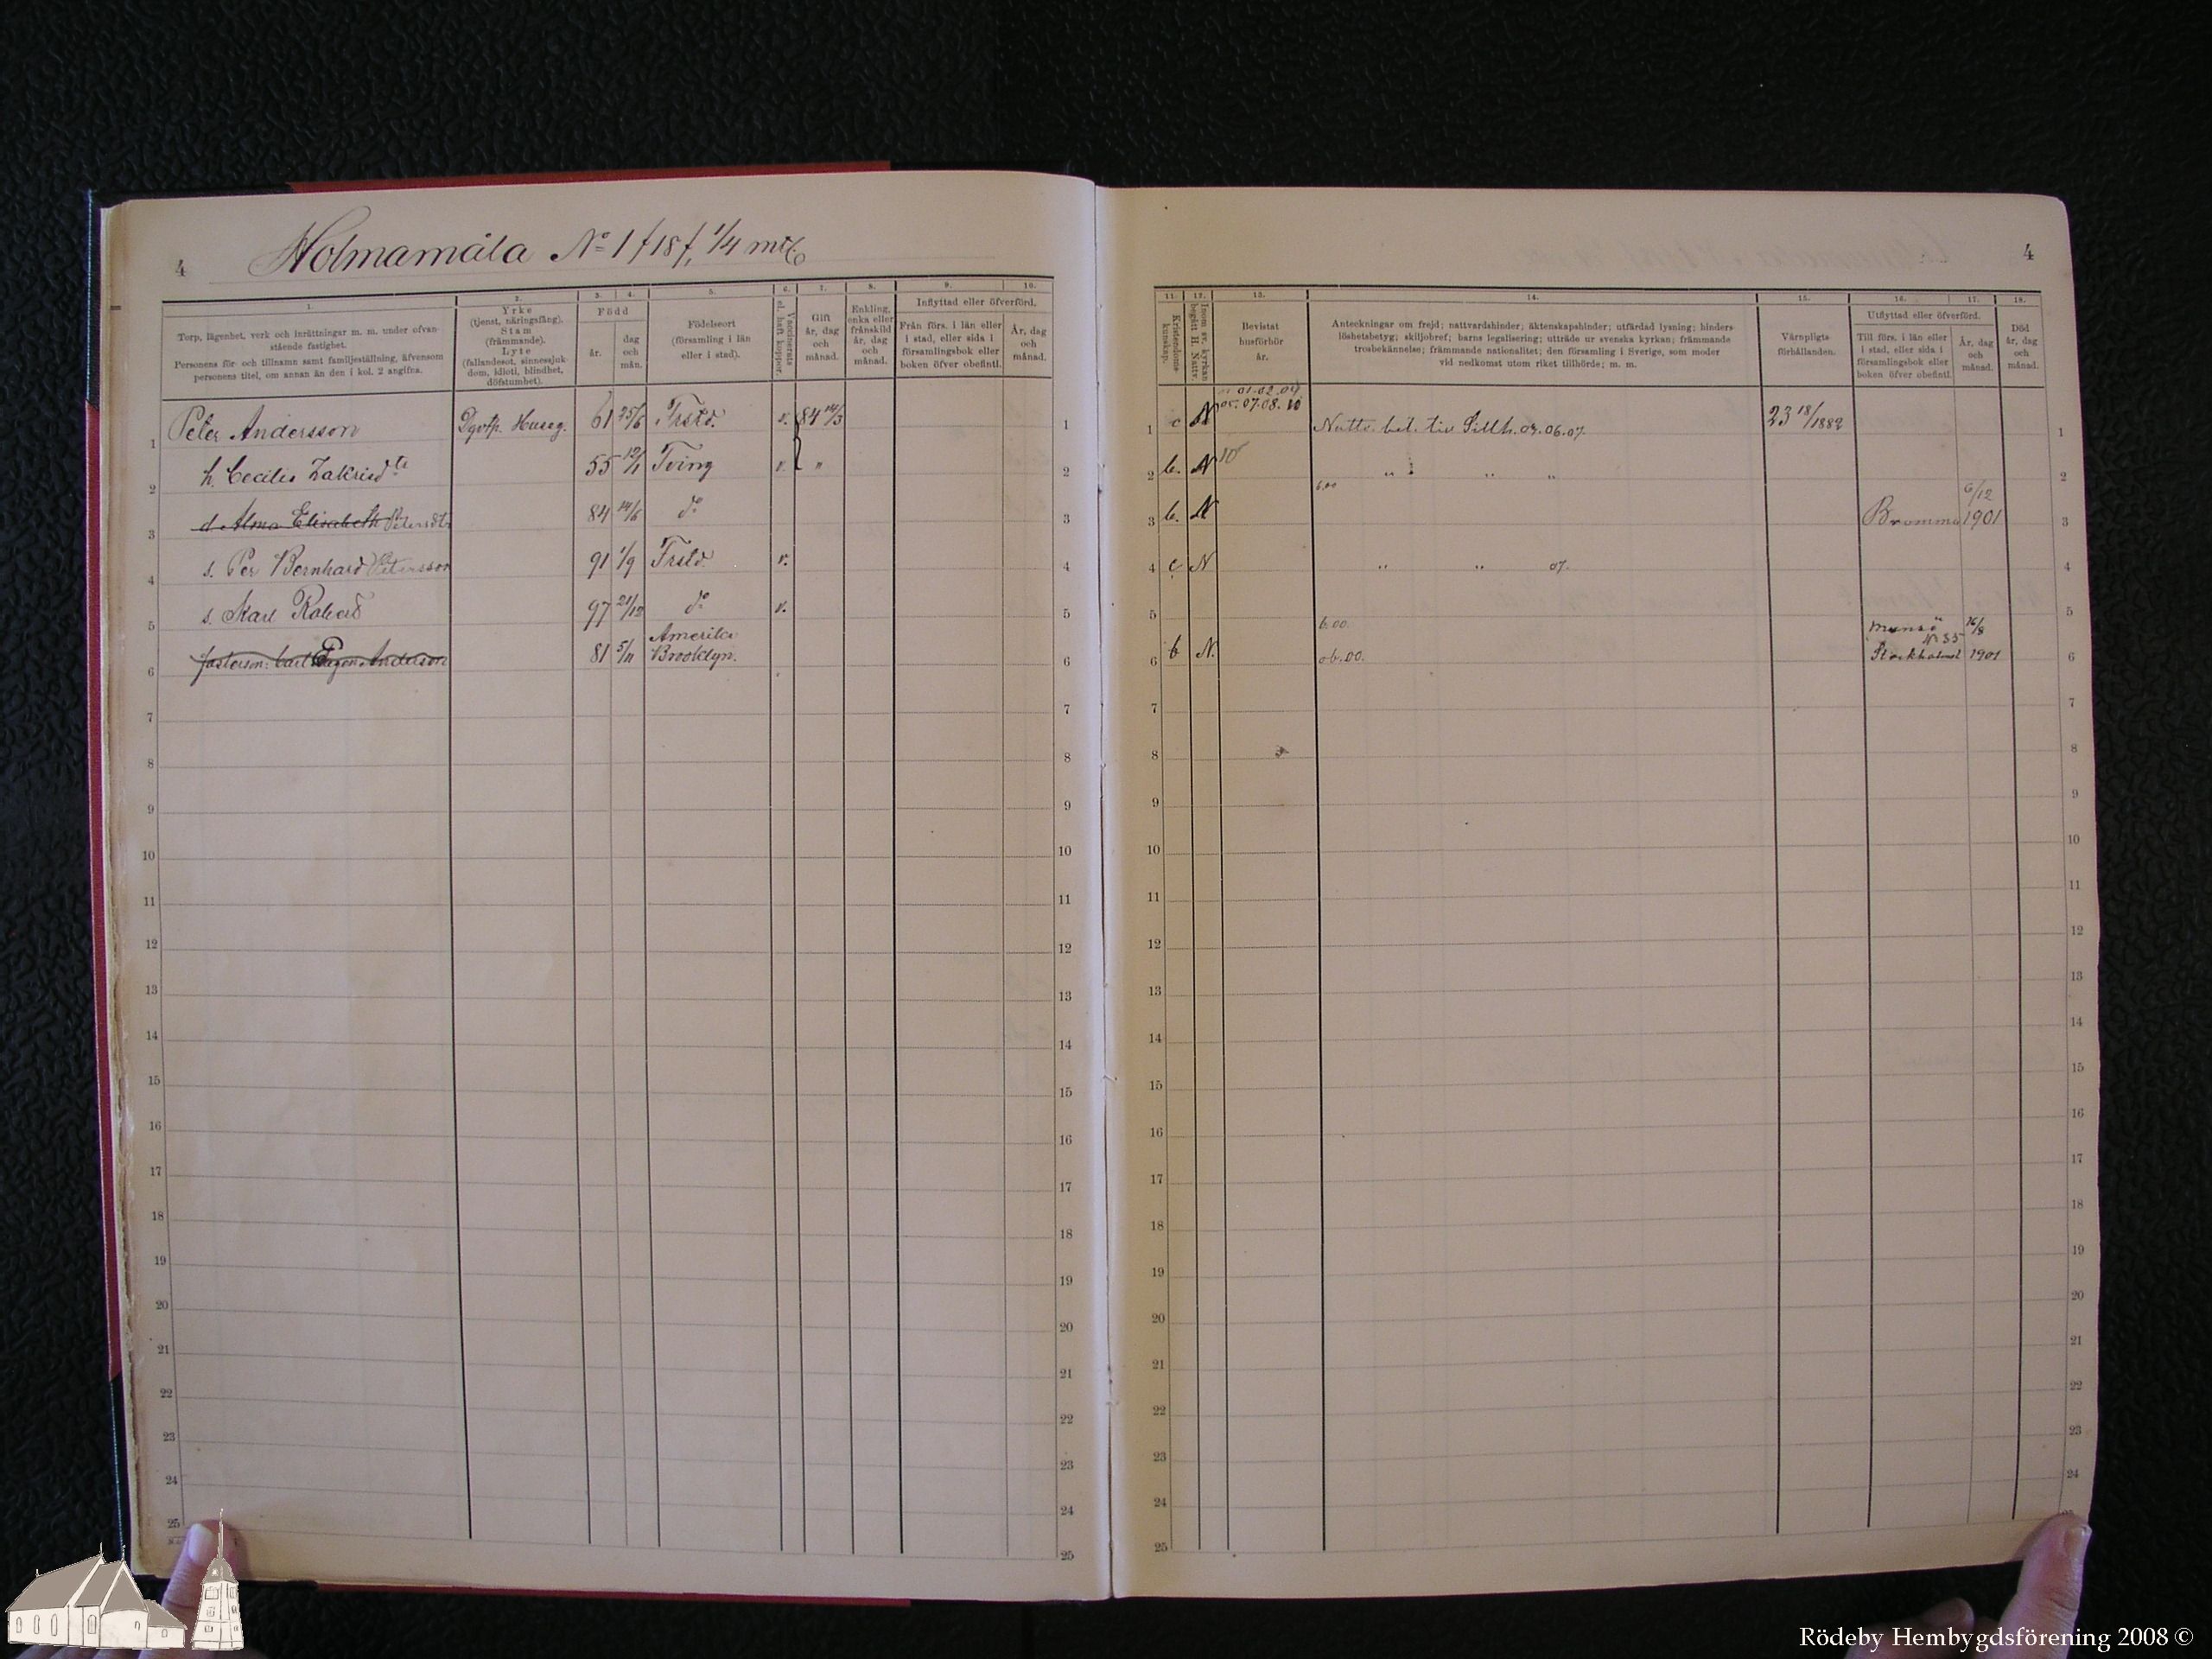 4
Holmamåla No 1 f 18 f, 1/4 mtl
1.
Torp, lägenhet, verk och inrättningar m. m. under ofvan-
stående fastighet.
Personens för- och tillnamn samt familjeställning, äfvensom
personens titel, om annan än den i kol. 2 angifna.
2.
Yrke
(tjenst, näringsfång).
Stam
(främmande).
Lyte
(fallandesot, sinnessjuk-
dom, idioti, blindhet,
döfstumhet).
3. 4.
Född
år.
dag
och
mån.
5.
Födelseort
(församling i län
eller i stad).
6.
Vaccinerats
el. haft koppor.
7.
Gift
år, dag
och
månad.
8.
Enkling,
enka eller
frånskild
år, dag
och
månad.
9. 10.
Inflyttad eller öfverförd.
Från förs. i län eller
i stad, eller sida i
församlingsbok eller
boken öfver obefintl.
År, dag
och
månad.
1 Peter Andersson 61 25/6 v. 84 14/3 1
2 h. Cecilia Zakrisdtr 55 Tving v. " 2
3 d Alma Elisabeth Petersdtr 84 14/6 do 3
4 s. Per Bernhard Petersson 91 1/9 v. 4
5 s. Karl Robert 97 21/12 do v. 5
Amerika
6 fosterson: Carl Eugen Anderson 81 5/11 Brooklyn. 6
7 7
8 8
9 9
10 10
11 11
12 12
13 13
14 14
15 15
16 16
17 17
18 18
19 19
20 20
21 21
22 22
23 23
24 24
25 25
4
11.
Kristendoms-
kunskap.
12.
Inom sv. kyrkan
begått H. Nattv.
13.
Bevistat
husförhör
år.
14.
Anteckningar om frejd; nattvardshinder; äktenskapshinder; utfärdad lysning; hinders-
löshetsbetyg; skiljobref; barns legalisering; utträde ur svenska kyrkan; främmande
trosbekännelse; främmande nationalitet; den församling i Sverige, som moder
vid nedkomst utom riket tillhörde; m. m.
15.
Värnpligts-
förhållanden.
16. 17.
Utflyttad eller öfverförd.
Till förs. i län eller
i stad, eller sida i
församlingsbok eller
boken öfver obefintl.
År, dag
och
månad.
18.
Död
år, dag
och
månad.
01.02.04
05.07.08.10
1 c N Nattv. bet. till Sillh. 03.06.07. 23 18/1882 1
2 b. N 10 " " " 2
b.00 6/12
3 b. N Bromma 1901 3
4 c N " " 07. 4
5 5
b.00. Munsö 16/8
N. 35
6 b N. ob.00. Stockholms l 1901 6
7 7
8 8
9 9
10 10
11 11
12 12
13 13
14 14
15 15
16 16
17 17
18 18
19 19
20 20
21 21
22 22
23 23
24 24
25
Rödeby Hembygdsförening 2008 ©